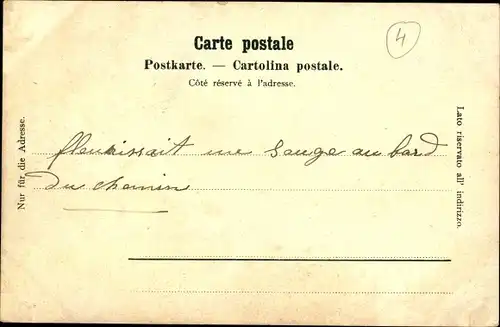 Carte postale
4
Postkarte. — Cartolina postale.
Côté réservé à l'adresse.
Nur für die Adresse.
Lato riservato all' indirizzo.
fleurissait une sauge au bord
du chemin